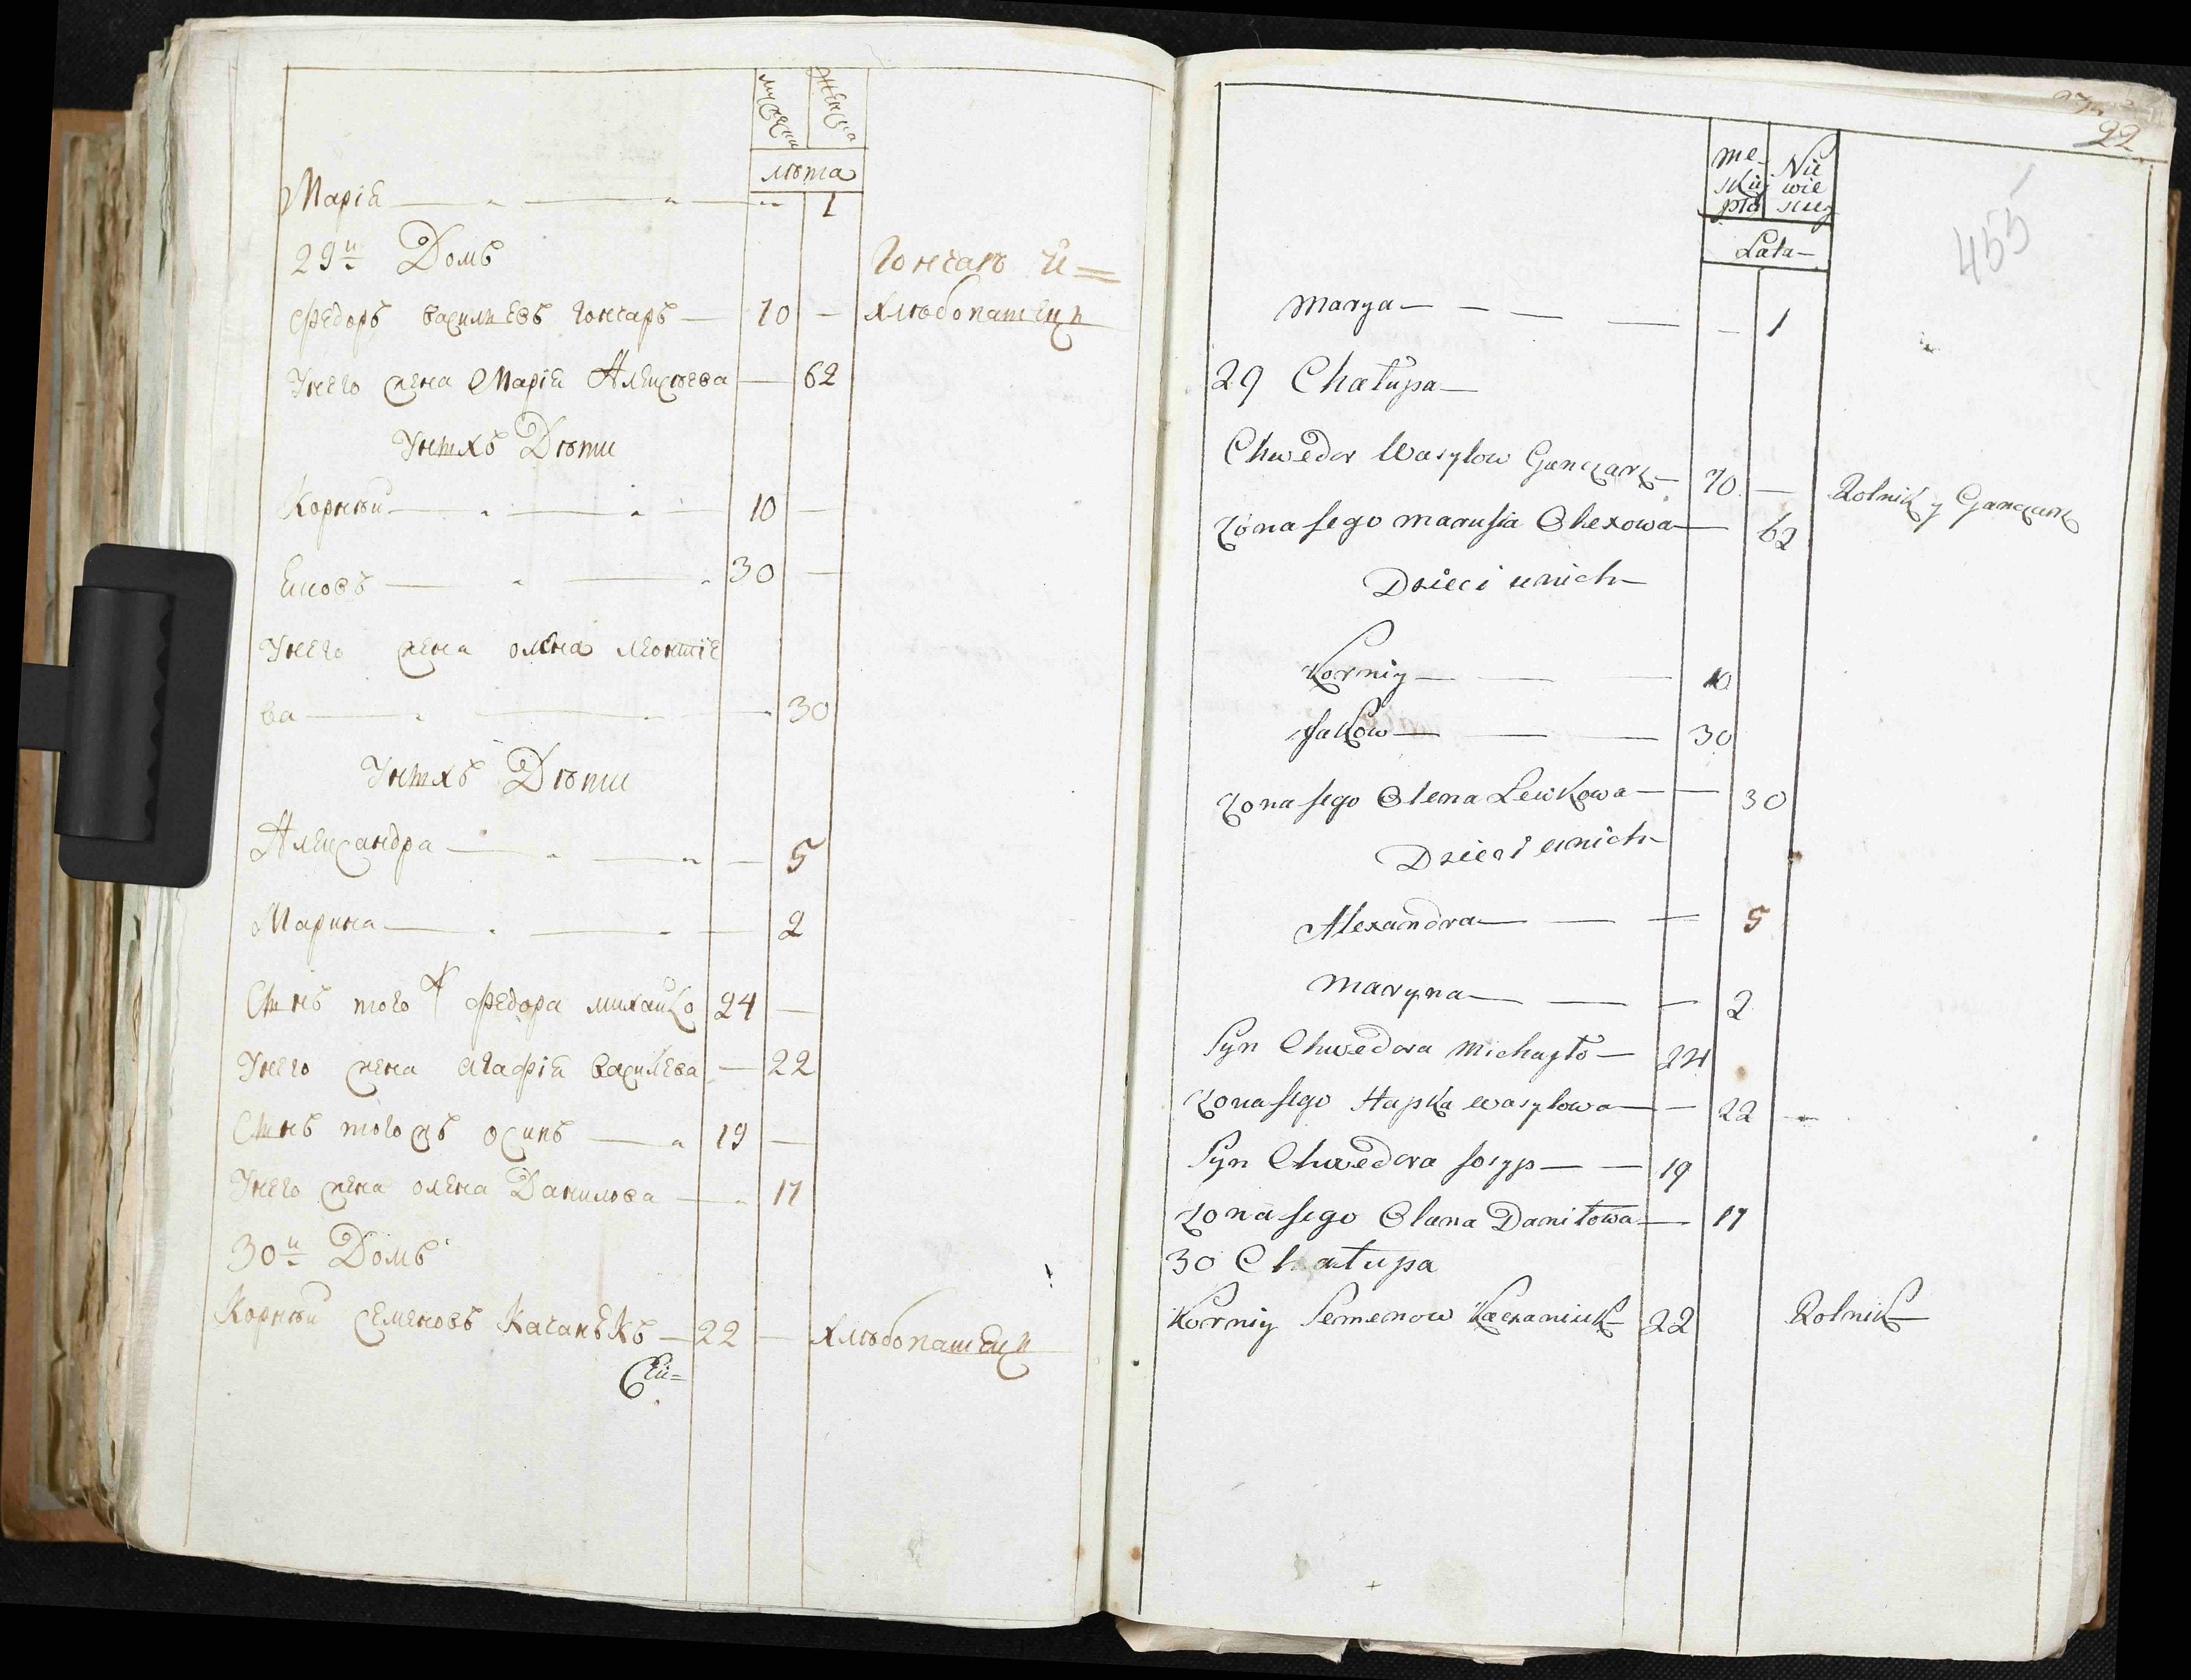 мужеска
женска
лѣта
Марія 1
29й Домъ
Гончаръ и=
Федоръ Васильевъ Гончаръ 70 хлѣбопашецъ
Унего жена Марія Алексѣева 62
Унихъ Дѣти
Корнѣй 10
Яковъ 30
Унего жена олена леонтіе
ва 30
Унихъ Дѣти
Александра 5
Марина 2
Сынъ того ж Федора михайло 24
Унего жена агафія василева 22
Сынъ тогожъ осипъ 19
Унего жена олена Данилова 17
30й Домъ
Корнѣй семеновъ Качанюкъ 22 хлѣбопашецъ
22
455
me-
skiej
płci
Nie
wie
sciey
Lata
Marya 1
29 Chałupa
Chwedor Wasylow Ganczarz 70 Rolnik y Ganczarz
Zona jego marusia Olexowa 62
Dzieci u nich
Korniy 10
Jakow 30
Zona jego Olena Lewkowa 30
Dzieci u nich
Alexandra 5
Maryna 2
Syn Chwedora Michayło 24
Zona jego Hapka wasylowa 22
Syn Chwedora Josyp 19
Zona jego Olana Daniłowa 17
30 Chałupa
Korniy Semenow Kaczaniuk 22 Rolnik